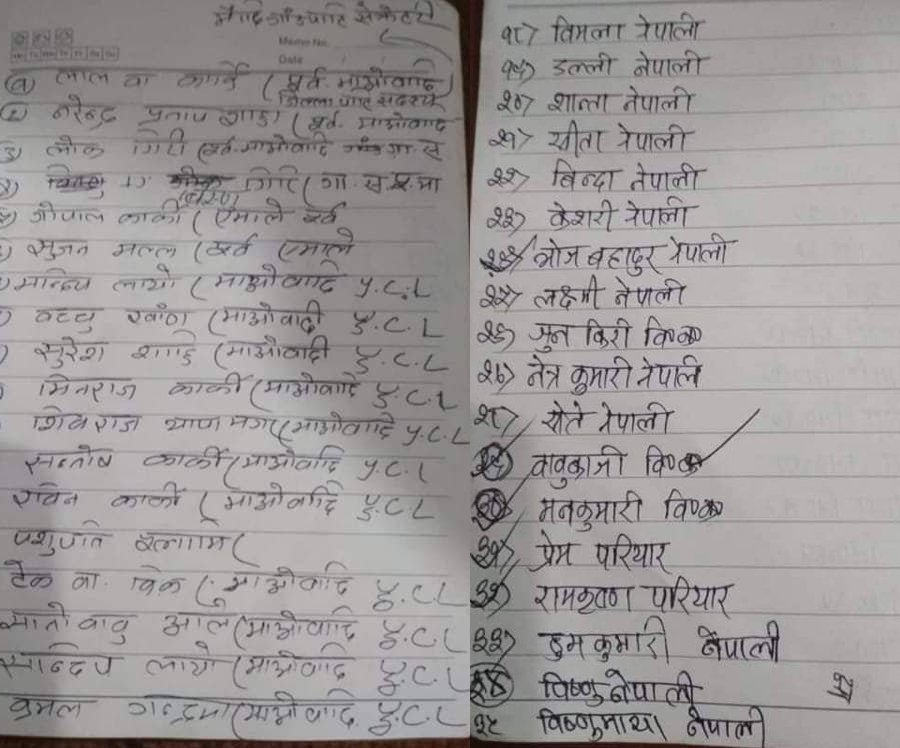 Memo No.
Date
लाल वा कार्की (पूर्व माओवादि
जिल्ला पार्टि सदस्य
नरेन्द्र प्रताप शाह (पूर्व. माओवाद
लोक गिरी (पूर्व. माओवादि गा. स
गिरि (गा. स.
गोपाल कार्की (एमाले पूर्व
सुजन मल्ल (पूर्व एमाले
मान्दिप लायो (माओवादि Y.C.L
वच्चु खवाँण (माओवादी Y.C.L
सुरेश शाहि (माओवादी Y.C.L
मिनराज कार्की (माओवादि Y.C.L
शिवराज थापा मगर (माओवादि Y.C.L
सन्तोष कार्की (माओवादि Y.C.L
रविन कार्की (माओवादि Y.C.L
पशुपति
टेक वा. विक (माओवादि Y.C.L
सानो वावु आले (माओवादि Y.C.L
सान्दिप लायो (माओवादि Y.C.L
कमल (माओवादि. Y.C.L
१८) विमला नेपाली
१९) डल्ली नेपाली
२०) शान्ता नेपाली
२१) सीता नेपाली
२२) विन्दा नेपाली
२३) केशरी नेपाली
२४) भोज बहादुर नेपाली
२५) लक्ष्मी नेपाली
२६) जुन किरी वि॰क
२७) नेत्र कुमारी नेपाली
२८) सेते नेपाली
२९) वावुकाजी वि॰क
३०) मनकुमारी वि॰क
३१) प्रेम परियार
३२) रामकृष्ण परियार
३३) डुम कुमारी नेपाली
३४ विष्णु नेपाली
३५ विष्णुमाया नेपाली